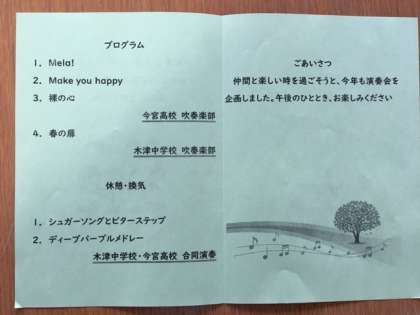 プログラム
1. Mela!
2. Make you happy
3. 裸の心
今宮高校 吹奏楽部
4. 春の扉
木津中学校 吹奏楽部
休憩・換気
1. シュガーソングとビターステップ
2. ディープパープルメドレー
木津中学校・今宮高校 合同演奏
ごあいさつ
仲間と楽しい時を過ごそうと、今年も演奏会を
企画しました。午後のひととき、お楽しみください